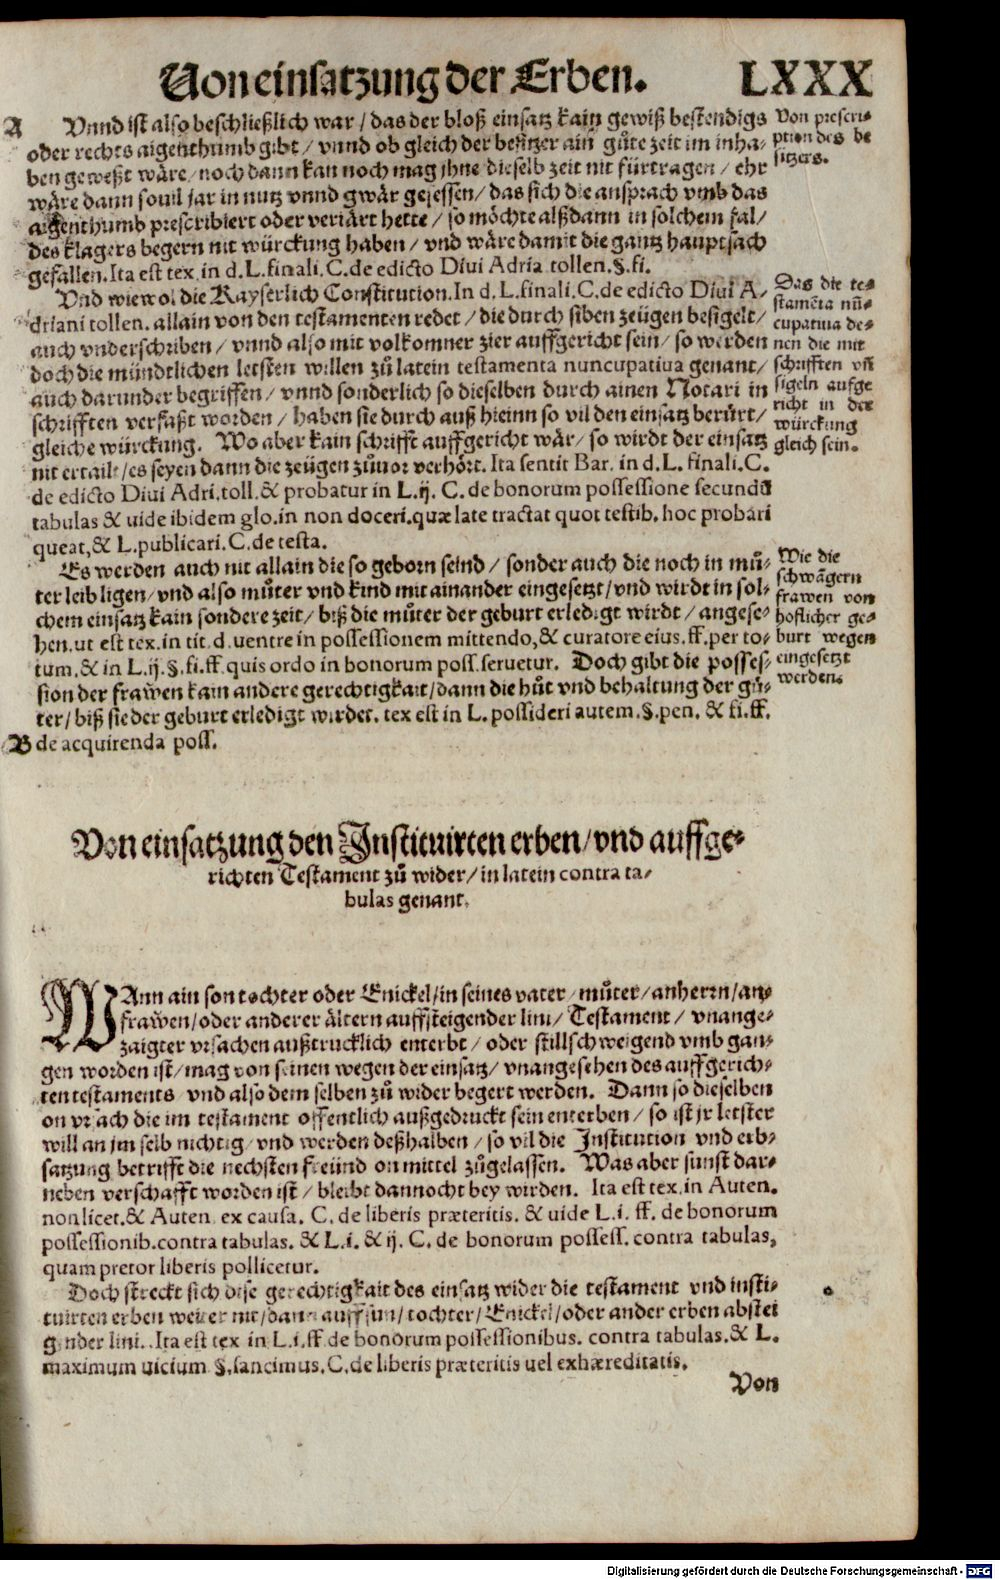 Von einsatzung der Erben. LXXX
A Vnnd ist also beschließlich war / das der bloß einsatz kain gewiß bestendigs
oder rechts aigenthumb gibt / vnnd ob gleich der besitzer ain gůte zeit im inha-
ben geweßt wäre / noch dann kan noch mag jhne dieselb zeit nit fürtragen / ehr
wäre dann souil jar in nutz vnnd gwär gesessen / das sich die ansprach vmb das
aigenthumb prescribiert oder veriärt hette / so möchte alßdann in solchem fal /
des klagers begern nit würckung haben / vnd wäre damit die gantz hauptsach
gefallen. Ita est tex. in d. L. finali. C. de edicto Diui Adria. tollen. §. fi.
Von prescri-
ption des be
sitzers.
Vnd wiewol die Kayserlich Constitution. In d. L. finali. C. de edicto Diui A-
driani tollen. allain von den testamenten redet / die durch siben zeügen besigelt /
auch vnderschriben / vnnd also mit volkomner zier auffgericht sein / so werden
doch die mündtlichen letsten willen zů latein testamenta nuncupatiua genant /
auch darunder begriffen / vnnd sonderlich so dieselben durch ainen Notari in
schrifften verfaßt worden / haben sie durch auß hieinn so vil den einsatz berůrt /
gleiche würckung. Wo aber kain schrifft auffgericht wär / so wirdt der einsatz
nit ertailt / es seyen dann die zeügen zůuor verhört. Ita sentit Bar. in d. L. finali. C.
de edicto Diui Adri. toll. & probatur in L. ij. C. de bonorum possessione secundū
tabulas & uide ibidem glo. in non doceri. quæ late tractat quot testib. hoc probari
queat, & L. publicari. C. de testa.
Das die te-
stamēta nū-
cupatiua de-
nen die mit
schrifften vñ
sigeln aufge
richt in der
würckung
gleich sein.
Es werden auch nit allain die so geborn seind / sonder auch die noch in mů-
ter leib ligen / vnd also můter vnd kind mit ainander eingesetzt / vnd wirdt in sol-
chem einsatz kain sondere zeit / biß die můter der geburt erledigt wirdt / angese-
hen. ut est tex. in tit. d. uentre in possessionem mittendo, & curatore eius. ff. per to-
tum. & in L. ij. §. fi. ff. quis ordo in bonorum poss. seruetur. Doch gibt die posses-
sion der frawen kain andere gerechtigkait / dann die hůt vnd behaltung der gů-
ter / biß sie der geburt erledigt wirdet. tex est in L. possideri autem. §. pen. & fi. ff.
B de acquirenda poss.
Wie die
schwāgern
frawen von
hoflicher ge-
burt wegen
eingesetzt
werden.
Von einsatzung den Instituirten erben / vnd auffge-
richten Testament zů wider / in latein contra ta-
bulas genant.
WAnn ain son tochter oder Enickel / in seines vater / můter / anherrn / an-
frawen / oder anderer ältern auffsteigender lini / Testament / vnange-
zaigter vrsachen außtrucklich enterbt / oder stillschweigend vmb gan-
gen worden ist / mag von seinen wegen der einsatz / vnangesehen des auffgerich-
ten testaments / vnd also dem selben zů wider begert werden. Dann so dieselben
on vrsach die im testament offentlich außgedruckt sein enterben / so ist jr letster
will an jm selb nichtig / vnd werden deßhalben / so vil die Institution vnd erb-
satzung betrifft die nechsten freünd on mittel zůgelassen. Was aber sunst dar-
neben verschafft worden ist / bleibt dannocht bey wirden. Ita est tex. in Auten.
non licet. & Auten. ex causa. C. de liberis præteritis. & uide L. i. ff. de bonorum
possessionib. contra tabulas. & L. i. & ij. C. de bonorum possess. contra tabulas,
quam pretor liberis pollicetur.
Doch streckt sich dise gerechtigkait des einsatz wider die testament vnd insti-
tuirten erben weiter nit / dann auff sun / tochter / Enickel / oder ander erben abstei
gender lini. Ita est tex in L. i. ff. de bonorum possessionibus. contra tabulas. & L.
maximum uicium §. sancimus. C. de liberis præteritis uel exhæreditatis.
Von
Digitalisierung gefördert durch die Deutsche Forschungsgemeinschaft - DFG